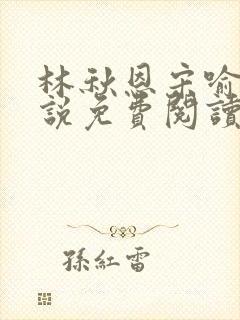 林秋恩宋喻
說免費閱讀
孫紅雷